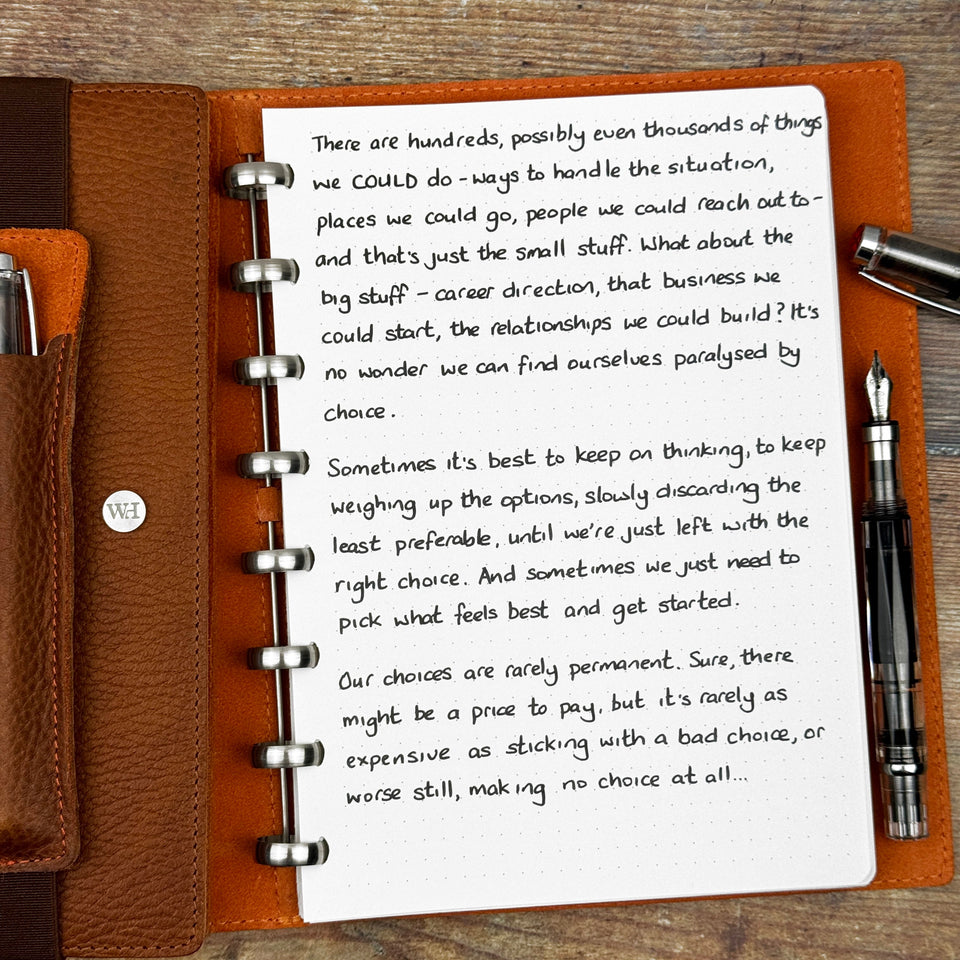 There are hundreds, possibly even thousands of things
we COULD do - ways to handle the situation,
places we could go, people we could reach out to -
and that's just the small stuff. What about the
big stuff - career direction, that business we
could start, the relationships we could build? It's
no wonder we can find ourselves paralysed by
choice.
Sometimes it's best to keep on thinking, to keep
weighing up the options, slowly discarding the
least preferable, until we're just left with the
right choice. And sometimes we just need to
pick what feels best and get started.
Our choices are rarely permanent. Sure, there
might be a price to pay, but it's rarely as
expensive as sticking with a bad choice, or
worse still, making no choice at all...
WH